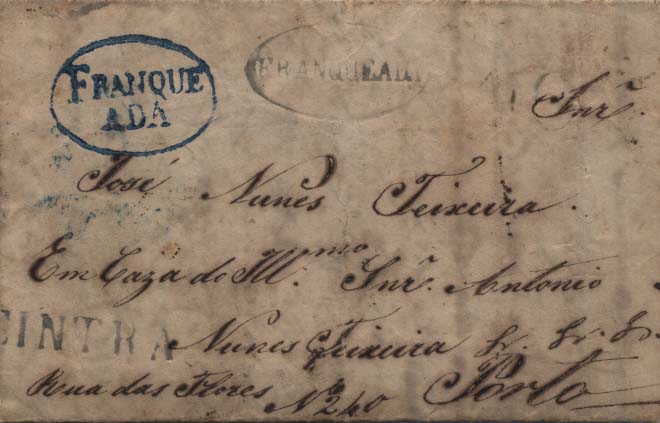 FRANQUE
ADA
FRANQUEADA
Snr.
José Nunes Teixeira.
Em Caza do Ill.mo Snr. Antonio
CINTRA
Nunes Teixeira Sr. Sr. Sr.
Rua das Flores No 240 Porto